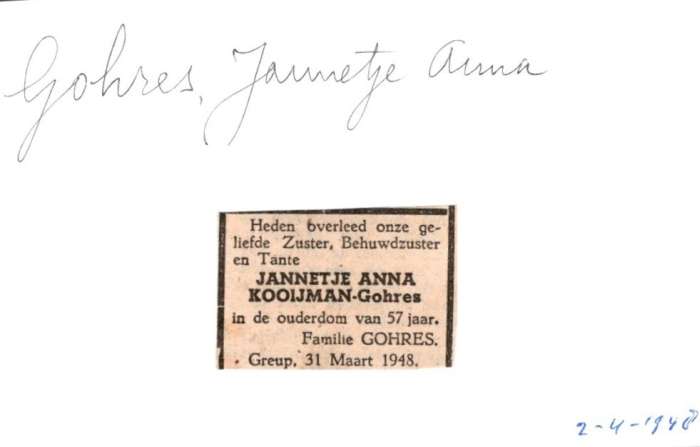 Gohres, Jannetje Anna
Heden overleed onze ge-
liefde Zuster, Behuwdzuster
en Tante
JANNETJE ANNA
KOOIJMAN-Gohres
in de ouderdom van 57 jaar.
Familie GOHRES.
Greup, 31 Maart 1948.
2-4-1948